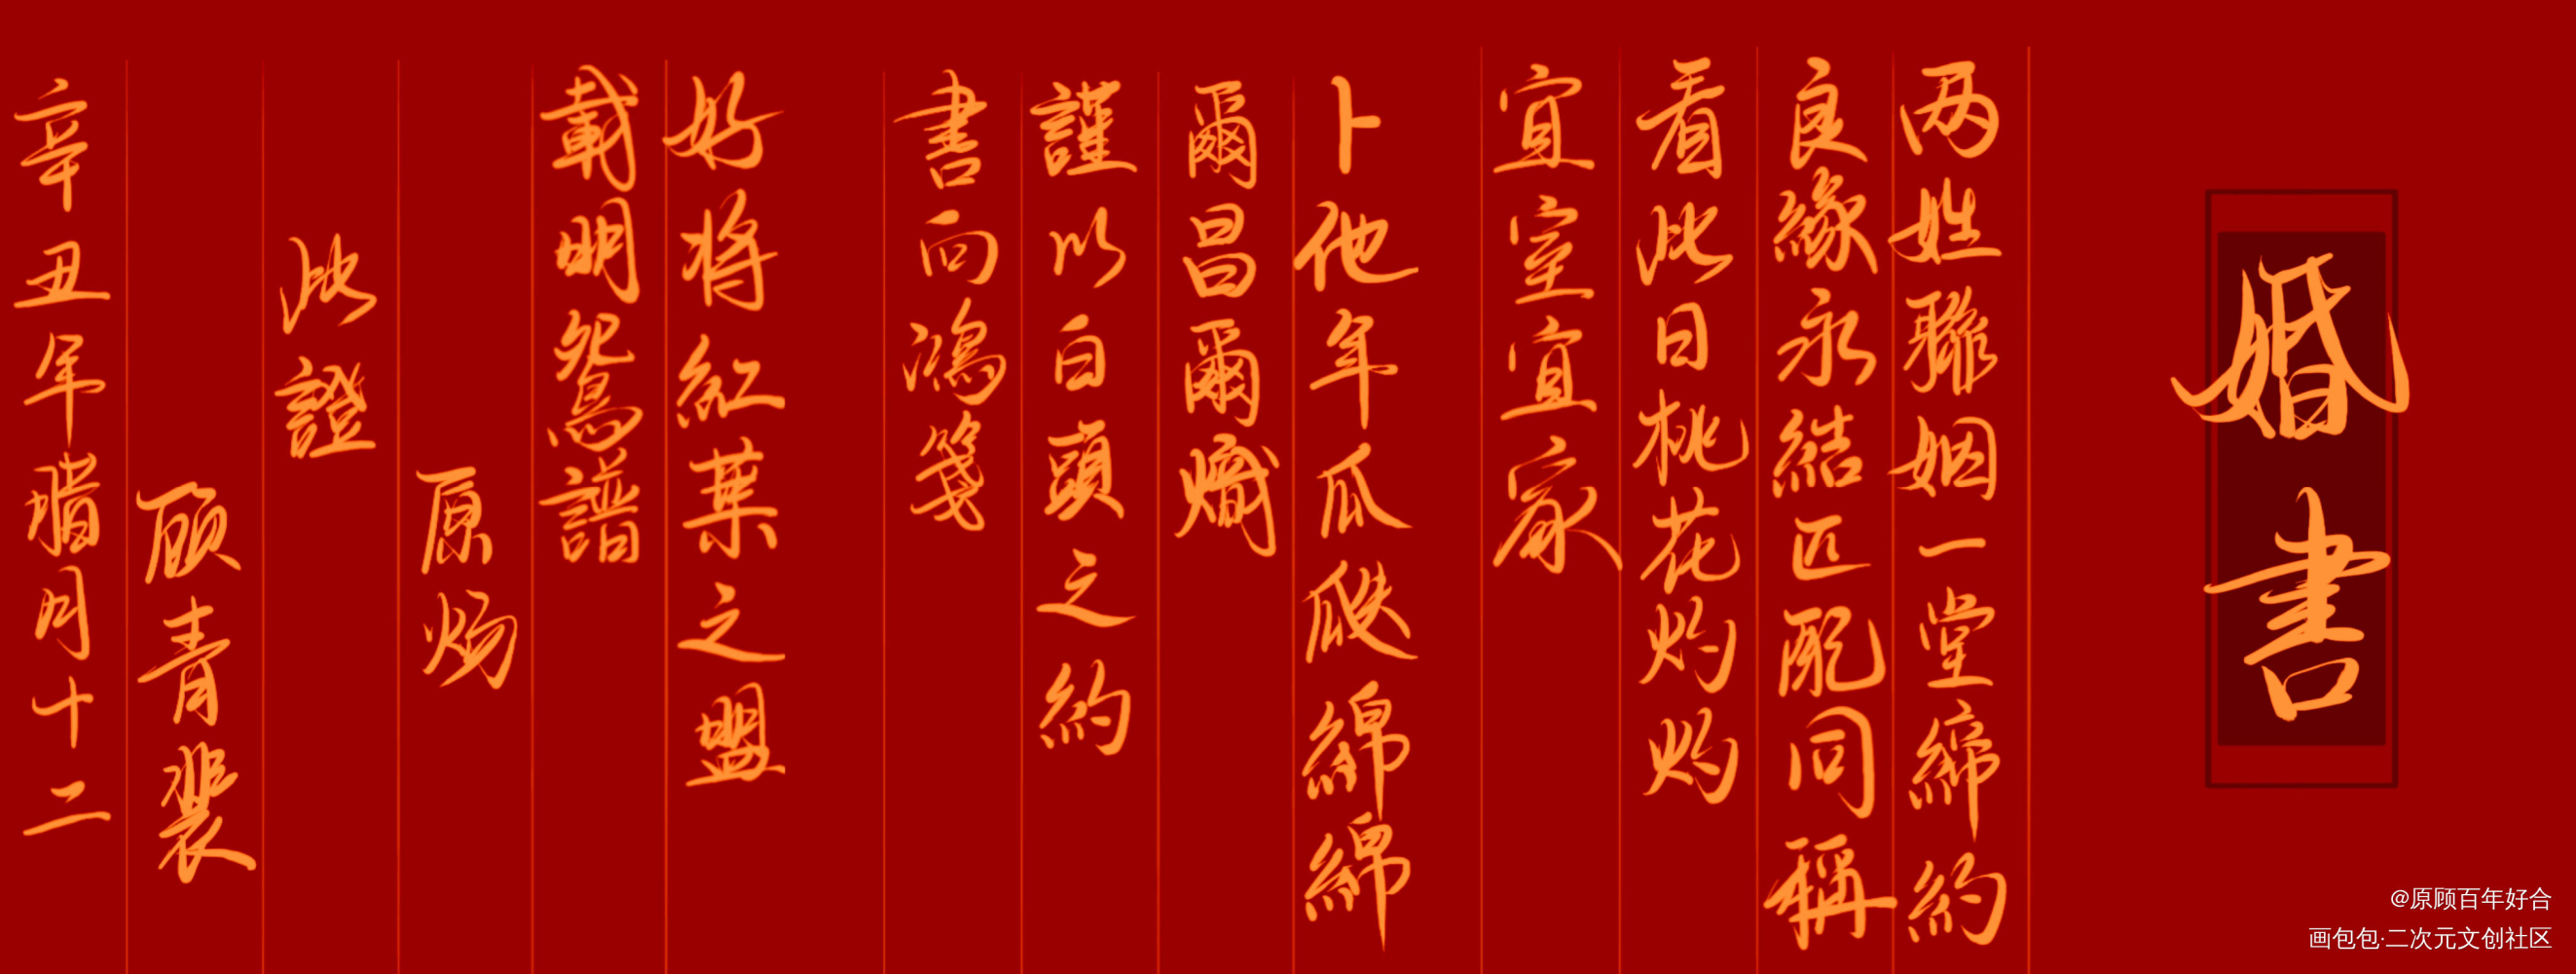 婚書
两姓聯姻一堂締約
良緣永結匹配同稱
看此日桃花灼灼
宜室宜家
卜他年瓜瓞綿綿
爾昌爾熾
謹以白頭之約
書向鴻箋
好将紅葉之盟
載明鴛譜
原炀
此證
顾青裴
辛丑年腊月十二
@原顾百年好合
画包包·二次元文创社区